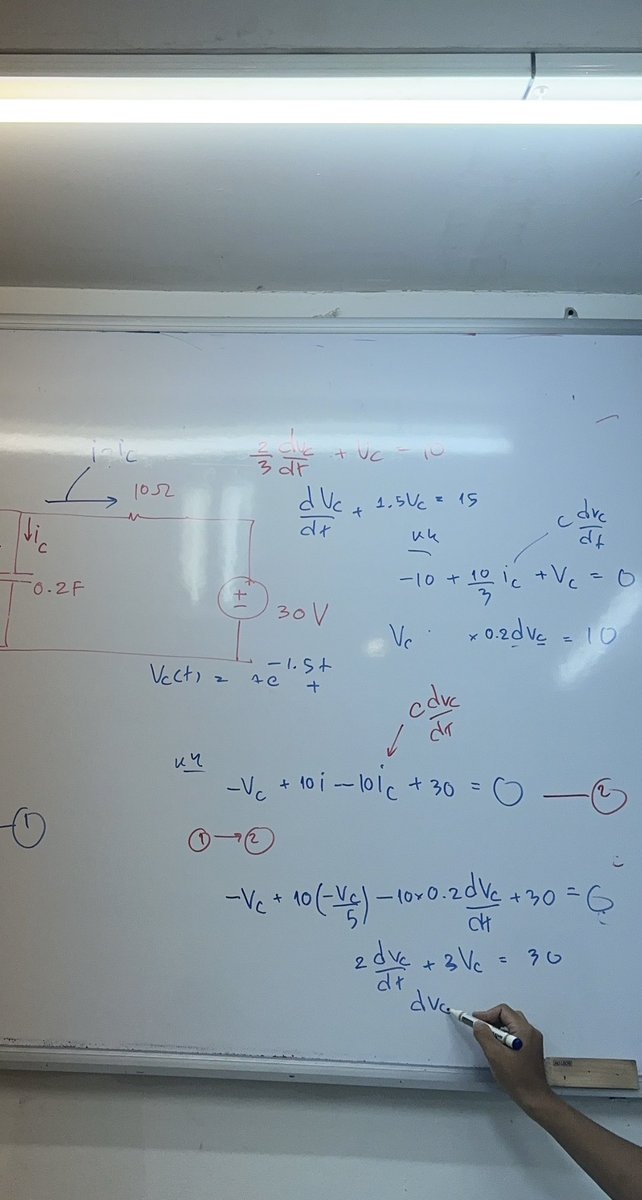 i - i_c
2/3 dv_c/dt + V_c = 10
10Ω
dV_c/dt + 1.5V_c = 15
↓i_c
C dv_c/dt
0.2F
-10 + 10/3 i_c + V_c = 0
30V
V_c × 0.2dv_c = 10
V_c(t) = + e^{-1.5t}
C dv_c/dt
-V_c + 10i - 10i_c + 30 = 0 — ②
①
① → ②
-V_c + 10(-V_c/5) - 10×0.2 dV_c/dt + 30 = 0
2 dv_c/dt + 3V_c = 30
dv_c